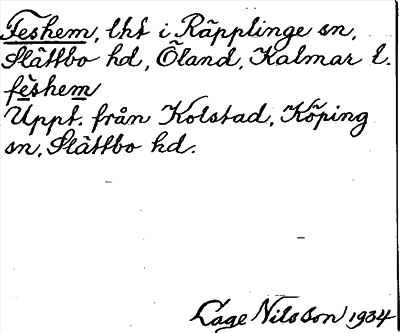 Feshem, lht i Räpplinge sn,
Slättbo hd, Öland, Kalmar l.
fèshem
Uppt. från Kolstad, Köping
sn, Slättbo hd.
Lage Nilsson 1934